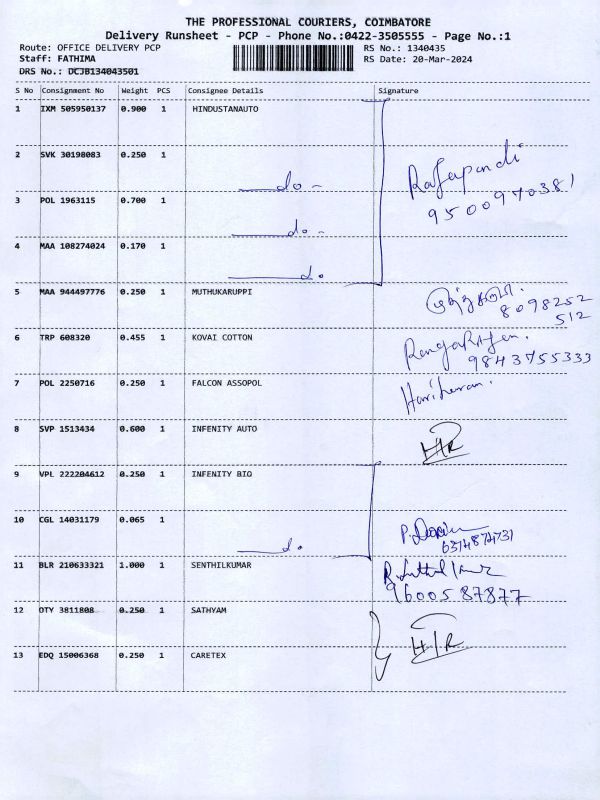 THE PROFESSIONAL COURIERS, COIMBATORE
Delivery Runsheet - PCP - Phone No.:0422-3505555 - Page No.:1
Route: OFFICE DELIVERY PCP RS No.: 1340435
Staff: FATHIMA RS Date: 20-Mar-2024
DRS No.: DCJB134043501
S No Consignment No Weight PCS Consignee Details Signature
1 IXM 505950137 0.900 1 HINDUSTANAUTO
2 SVK 30198083 0.250 1
do - Rajapandi
3 POL 1963115 0.700 1 9500970381
do -
4 MAA 108274024 0.170 1
do.
5 MAA 944497776 0.250 1 MUTHUKARUPPI
8098252
512
6 TRP 608320 0.455 1 KOVAI COTTON
9843755333
7 POL 2250716 0.250 1 FALCON ASSOPOL Hariharan.
8 SVP 1513434 0.600 1 INFENITY AUTO
9 VPL 222204612 0.250 1 INFENITY BIO
10 CGL 14031179 0.065 1
do.
11 BLR 210633321 1.000 1 SENTHILKUMAR
9600587877
12 OTY 3811808 0.250 1 SATHYAM
13 EDQ 15006368 0.250 1 CARETEX